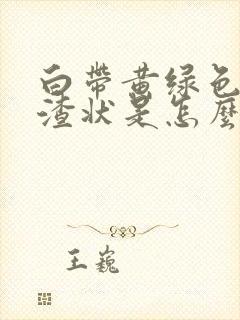 白带黄绿色
渣状是怎麼
王巍